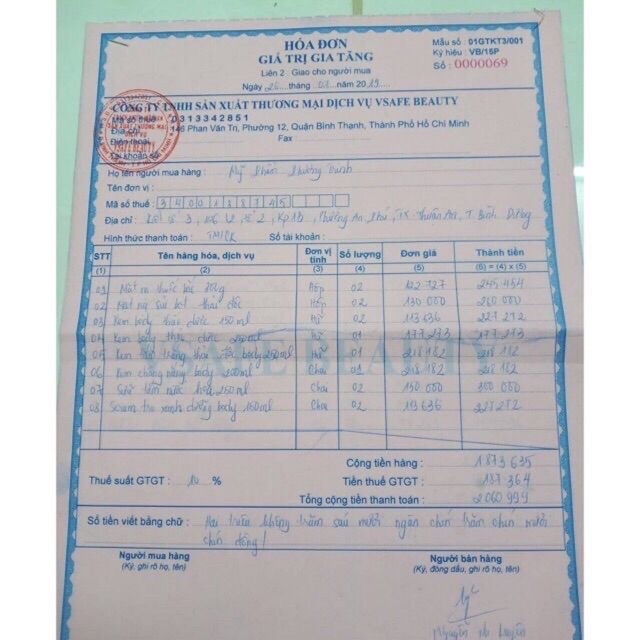 HÓA ĐƠN
GIÁ TRỊ GIA TĂNG
Liên 2 : Giao cho người mua
Ngày 26 tháng 03 năm 2019
Mẫu số : 01GTKT3/001
Ký hiệu : VB/15P
Số : 0000069
CÔNG TY TNHH SẢN XUẤT THƯƠNG MẠI DỊCH VỤ VSAFE BEAUTY
Mã số thuế 0313342851
Địa chỉ 146 Phan Văn Trị, Phường 12, Quận Bình Thạnh, Thành Phố Hồ Chí Minh
Điện thoại Fax :
Tài khoản số
Họ tên người mua hàng : Mỹ Phẩm
Tên đơn vị :
Mã số thuế : 3400
Địa chỉ : KP 1B, An Phú, TX Thuận An, T Bình Dương
Hình thức thanh toán : TM/CK Số tài khoản :
STT Tên hàng hóa, dịch vụ Đơn vị tính Số lượng Đơn giá Thành tiền
(1) (2) (3) (4) (5) (6) = (4) x (5)
01 Mặt nạ thuốc bắc Hộp 02 122 727 245 454
02 Mặt nạ sủi bọt thải độc Hộp 02 130 000 260 000
03 Kem body thảo dược 150 ml Hũ 02 113 636 227 272
04 Kem body thảo dược Hũ 01 177 273 177 273
05 Kem body 250ml Hũ 01 218 182 218 182
06 Kem chống nắng body 200ml Chai 01 218 182 218 182
07 Sữa tắm nước hoa 250ml Chai 02 150 000 300 000
08 Serum tro xanh dưỡng body 150ml Chai 02 113 636 227 272
VSAFE BEAUTY
Cộng tiền hàng : 1 873 635
Thuế suất GTGT : 10 % Tiền thuế GTGT : 187 364
Tổng cộng tiền thanh toán : 2 060 999
Số tiền viết bằng chữ : Hai triệu không trăm sáu mươi ngàn chín trăm chín mươi
chín đồng /
Người mua hàng Người bán hàng
(Ký, ghi rõ họ, tên) (Ký, đóng dấu, ghi rõ họ, tên)
Nguyễn